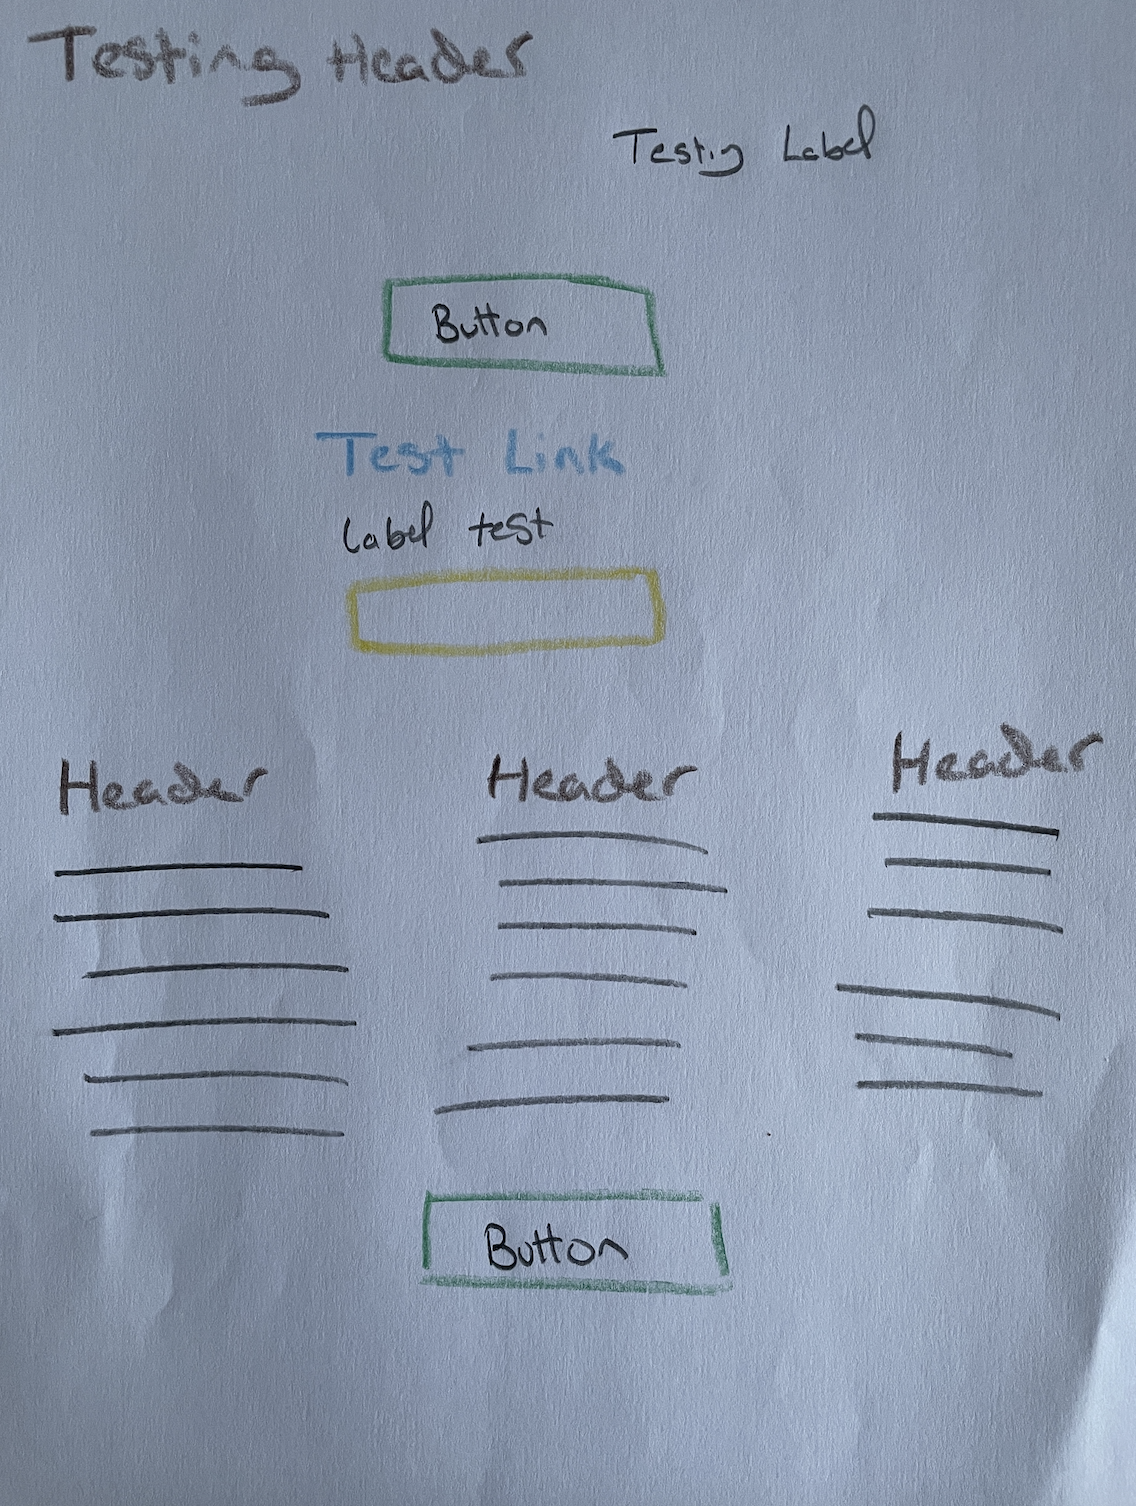 Testing Header
Testig Label
Button
Test Link
Label test
Header
Header
Header
Button